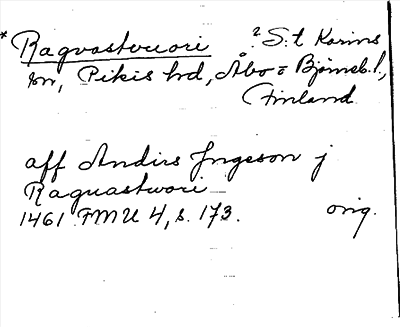 * Ragvastvuori ² S:t Karins
sn, Pikis hd, Åbo o Björneb. l,
Finland
aff Andirs Jngeson j
Raguastwori
1461 FMU 4, s. 173. orig.